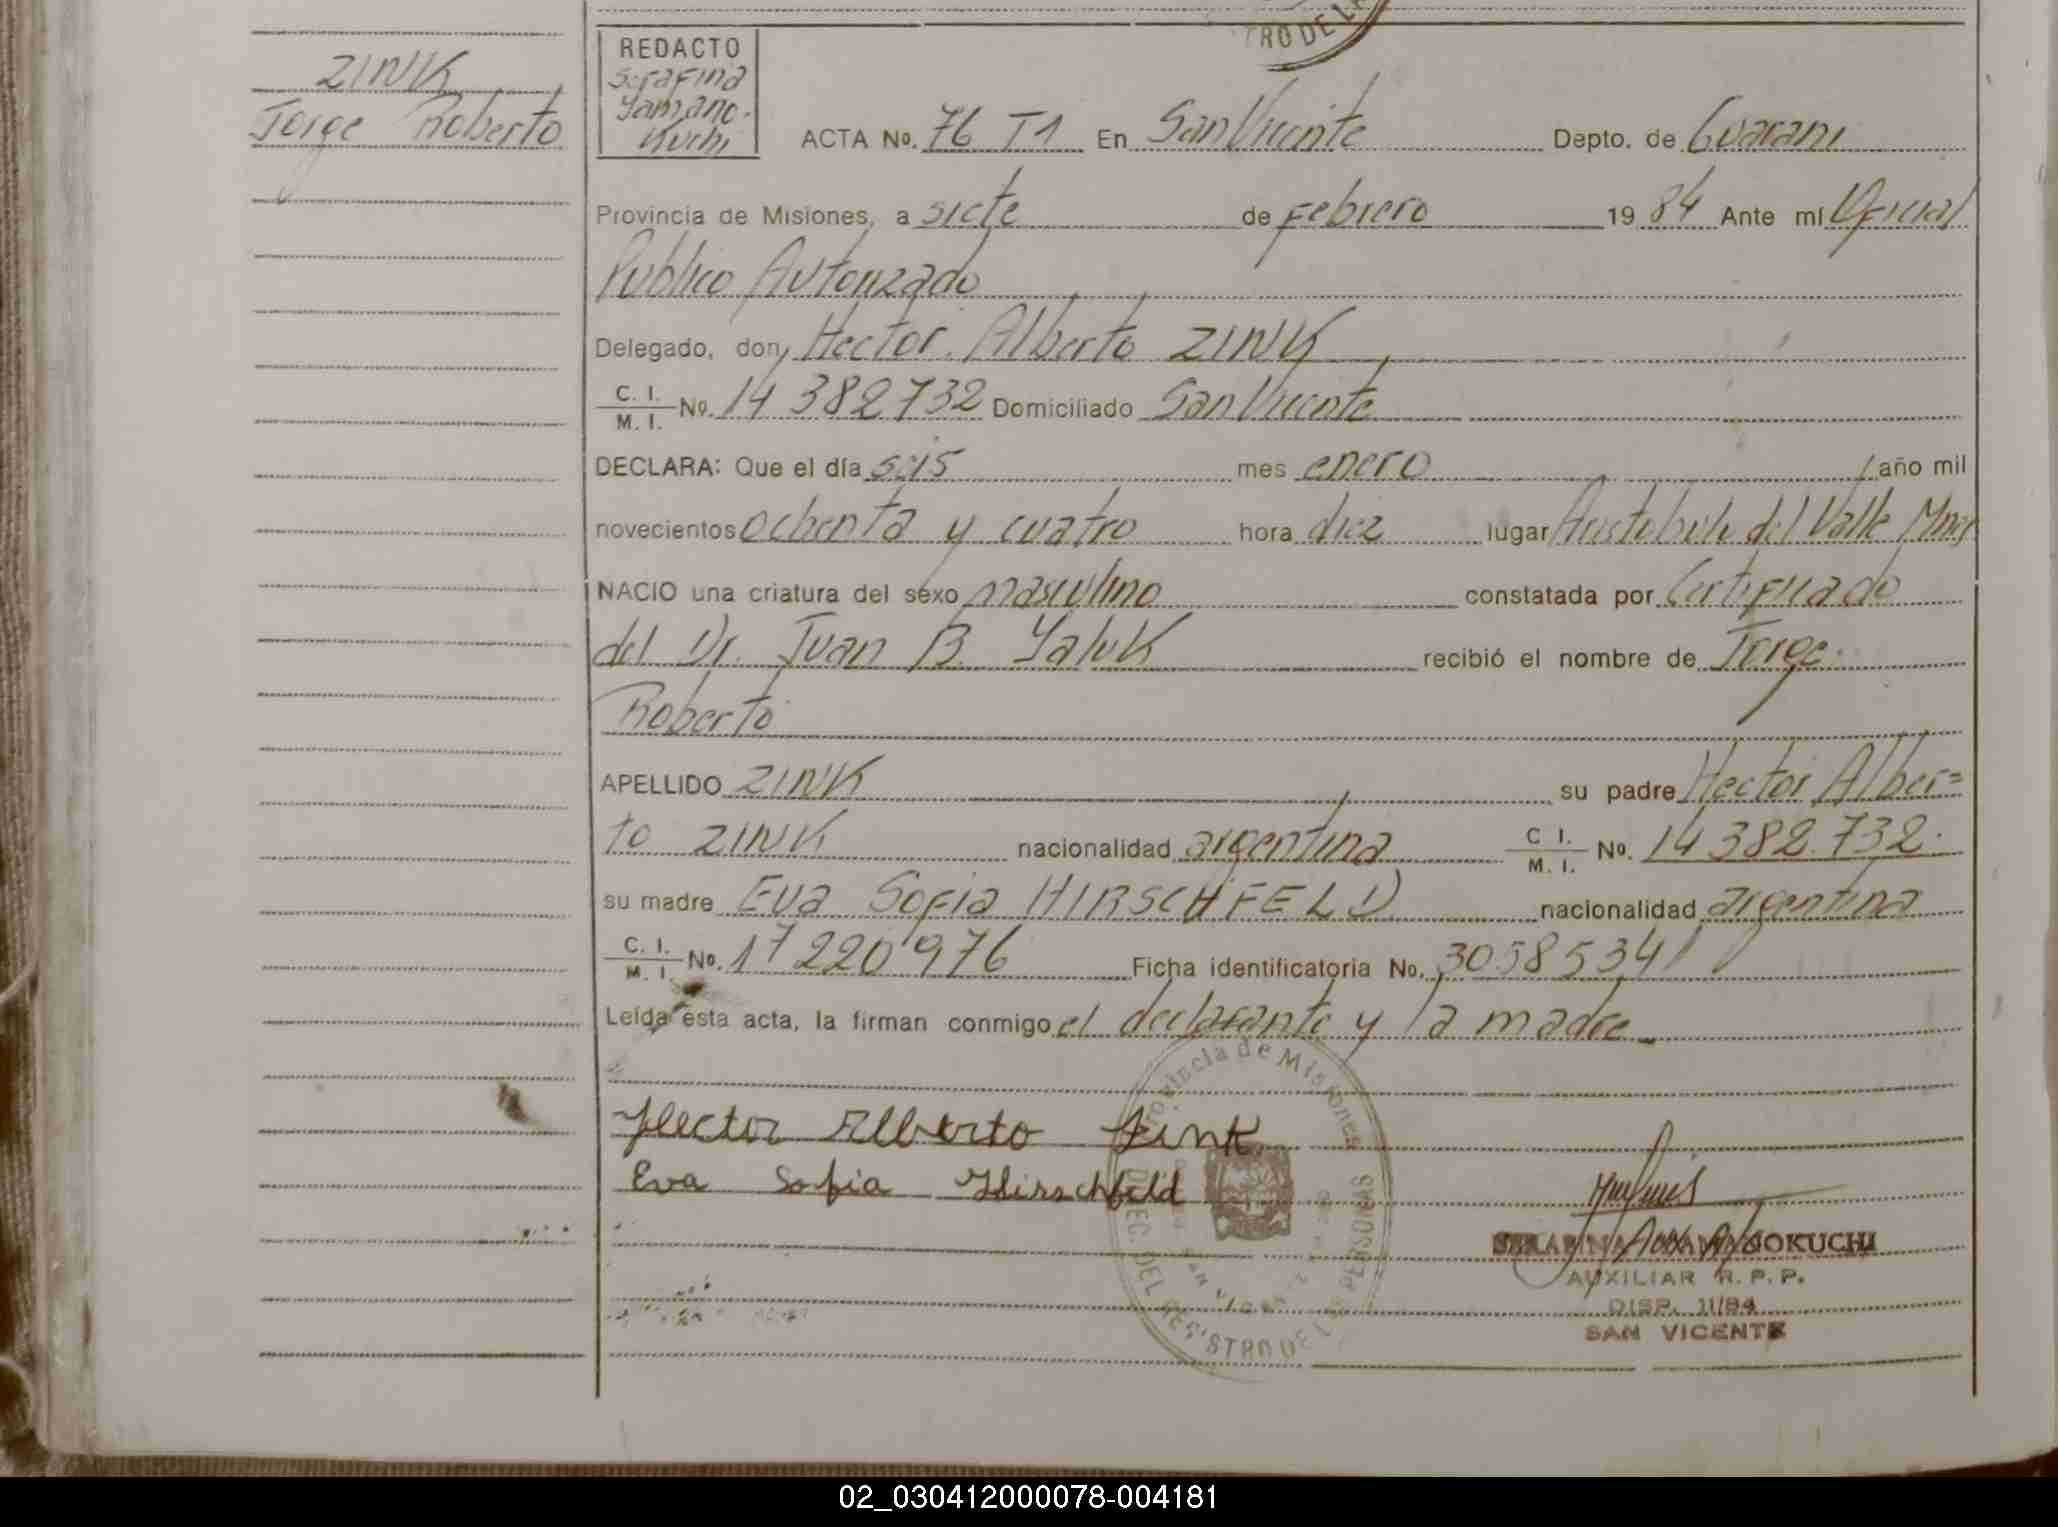 TRO DE LA
ZINK
Jorge Roberto
REDACTO
Serafina
Yamano-
Kuchi
ACTA No. 76 T1 En San Vicente Depto. de Guarani
Provincia de Misiones, a siete de febrero 1984 Ante mí Oficial
Publico Autorizado
Delegado, don Hector Alberto ZINK
C. I. / M. I. No. 14 382 732 Domiciliado San Vicente
DECLARA: Que el día seis mes enero año mil
novecientos ochenta y cuatro hora diez lugar Aristobulo del Valle Mnes
NACIO una criatura del sexo masculino constatada por Certificado
del Dr. Juan B. Yaluk recibió el nombre de Jorge
Roberto
APELLIDO ZINK su padre Hector Alber=
to ZINK nacionalidad argentina C I. / M. I. No. 14 382.732.
su madre Eva Sofia HIRSCHFELD nacionalidad argentina
C. I. / M. I. No. 17 220 976 Ficha identificatoria No. 30585341
Leída esta acta, la firman conmigo el declarante y la madre
Provincia de Misiones
Hector Alberto Zink
Eva Sofia Hirschfeld
DIREC. DEL REGISTRO DE LAS PERSONAS
SAN VICENTE
SERAFINA YAMANOKUCHI
AUXILIAR R. P. P.
DISP. 11/84
SAN VICENTE
02_030412000078-004181